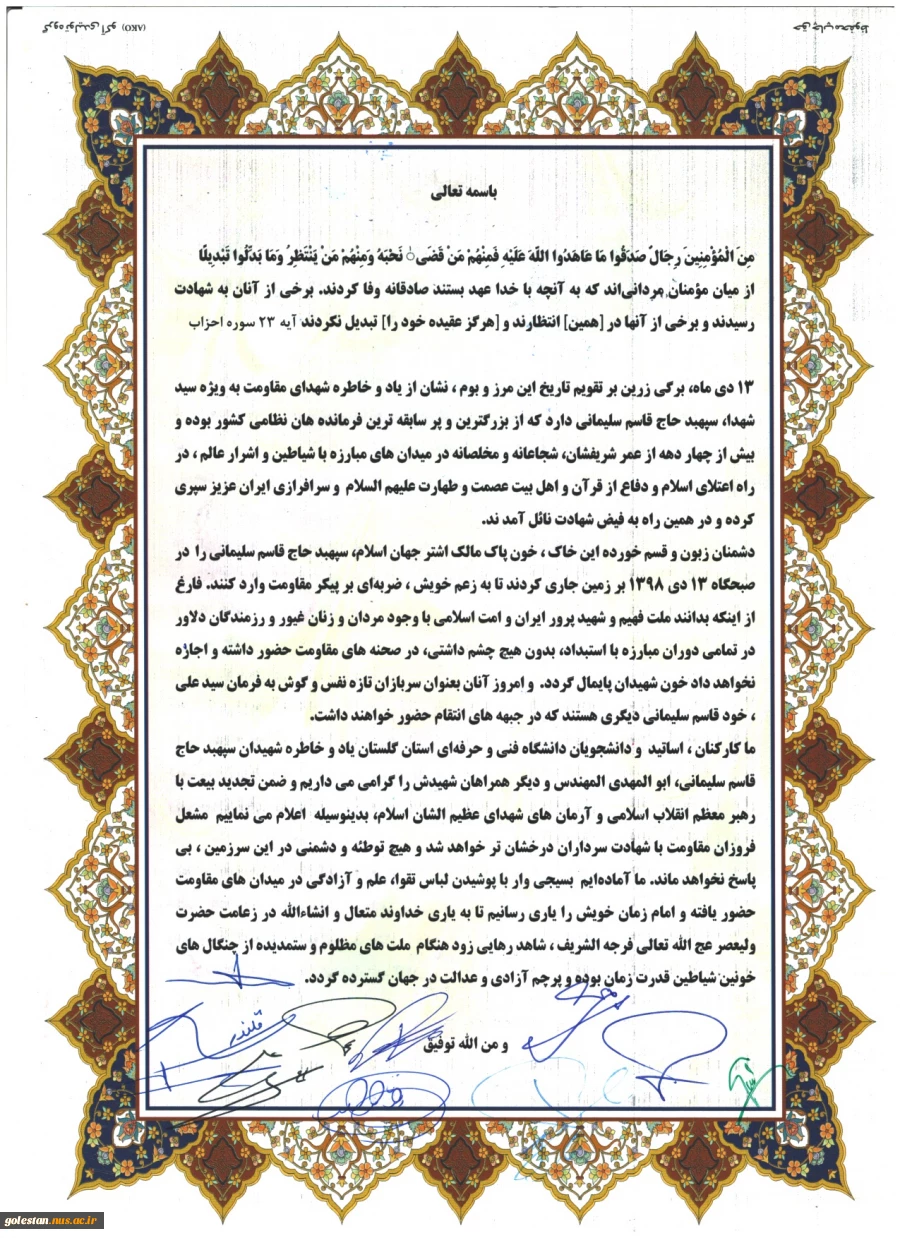 گروه تولیدی آکو (AKO)
حق چاپ محفوظ
باسمه تعالی
مِنَ الْمُؤْمِنِينَ رِجَالٌ صَدَقُوا مَا عَاهَدُوا اللَّهَ عَلَيْهِ فَمِنْهُمْ مَنْ قَضَىٰ نَحْبَهُ وَمِنْهُمْ مَنْ يَنْتَظِرُ وَمَا بَدَّلُوا تَبْدِيلًا
از میان مؤمنان مردانی‌اند که به آنچه با خدا عهد بستند صادقانه وفا کردند. برخی از آنان به شهادت
رسیدند و برخی از آنها در [همین] انتظارند و [هرگز عقیده خود را] تبدیل نکردند آیه ۲۳ سوره احزاب
۱۳ دی ماه، برگی زرین بر تقویم تاریخ این مرز و بوم ، نشان از یاد و خاطره شهدای مقاومت به ویژه سید
شهدا، سپهبد حاج قاسم سلیمانی دارد که از بزرگترین و پر سابقه ترین فرمانده هان نظامی کشور بوده و
بیش از چهار دهه از عمر شریفشان، شجاعانه و مخلصانه در میدان های مبارزه با شیاطین و اشرار عالم ، در
راه اعتلای اسلام و دفاع از قرآن و اهل بیت عصمت و طهارت علیهم السلام و سرافرازی ایران عزیز سپری
کرده و در همین راه به فیض شهادت نائل آمد ند.
دشمنان زبون و قسم خورده این خاک ، خون پاک مالک اشتر جهان اسلام، سپهبد حاج قاسم سلیمانی را در
صبحگاه ۱۳ دی ۱۳۹۸ بر زمین جاری کردند تا به زعم خویش ، ضربه‌ای بر پیکر مقاومت وارد کنند. فارغ
از اینکه بدانند ملت فهیم و شهید پرور ایران و امت اسلامی با وجود مردان و زنان غیور و رزمندگان دلاور
در تمامی دوران مبارزه با استبداد، بدون هیچ چشم داشتی، در صحنه های مقاومت حضور داشته و اجازه
نخواهد داد خون شهیدان پایمال گردد. و امروز آنان بعنوان سربازان تازه نفس و گوش به فرمان سید علی
، خود قاسم سلیمانی دیگری هستند که در جبهه های انتقام حضور خواهند داشت.
ما کارکنان ، اساتید و دانشجویان دانشگاه فنی و حرفه‌ای استان گلستان یاد و خاطره شهیدان سپهبد حاج
قاسم سلیمانی، ابو المهدی المهندس و دیگر همراهان شهیدش را گرامی می داریم و ضمن تجدید بیعت با
رهبر معظم انقلاب اسلامی و آرمان های شهدای عظیم الشان اسلام، بدینوسیله اعلام می نماییم مشعل
فروزان مقاومت با شهادت سرداران درخشان تر خواهد شد و هیچ توطئه و دشمنی در این سرزمین ، بی
پاسخ نخواهد ماند. ما آماده‌ایم بسیجی وار با پوشیدن لباس تقوا، علم و آزادگی در میدان های مقاومت
حضور یافته و امام زمان خویش را یاری رسانیم تا به یاری خداوند متعال و انشاءالله در زعامت حضرت
ولیعصر عج الله تعالی فرجه الشریف ، شاهد رهایی زود هنگام ملت های مظلوم و ستمدیده از چنگال های
خونین شیاطین قدرت زمان بوده و پرچم آزادی و عدالت در جهان گسترده گردد.
و من الله توفیق
golestan.nus.ac.ir